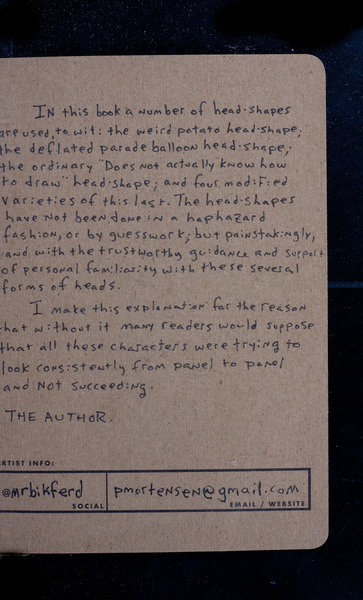 In this book a number of head-shapes
are used, to wit: the weird potato head-shape;
the deflated parade balloon head-shape;
the ordinary "Does not actually know how
to draw" head-shape; and four modified
varieties of this last. The head-shapes
have not been done in a haphazard
fashion, or by guesswork; but painstakingly,
and with the trustworthy guidance and support
of personal familiarity with these several
forms of heads.
I make this explanation for the reason
that without it many readers would suppose
that all these characters were trying to
look consistently from panel to panel
and not succeeding.
THE AUTHOR.
ARTIST INFO:
@mrbikferd
SOCIAL
pmortensen@gmail.com
EMAIL / WEBSITE